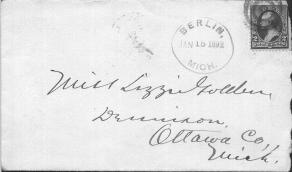 BERLIN,
JAN 15 1892
MICH.
Miss Lizzie Golden
Dennison,
Ottawa Co,
Mich.